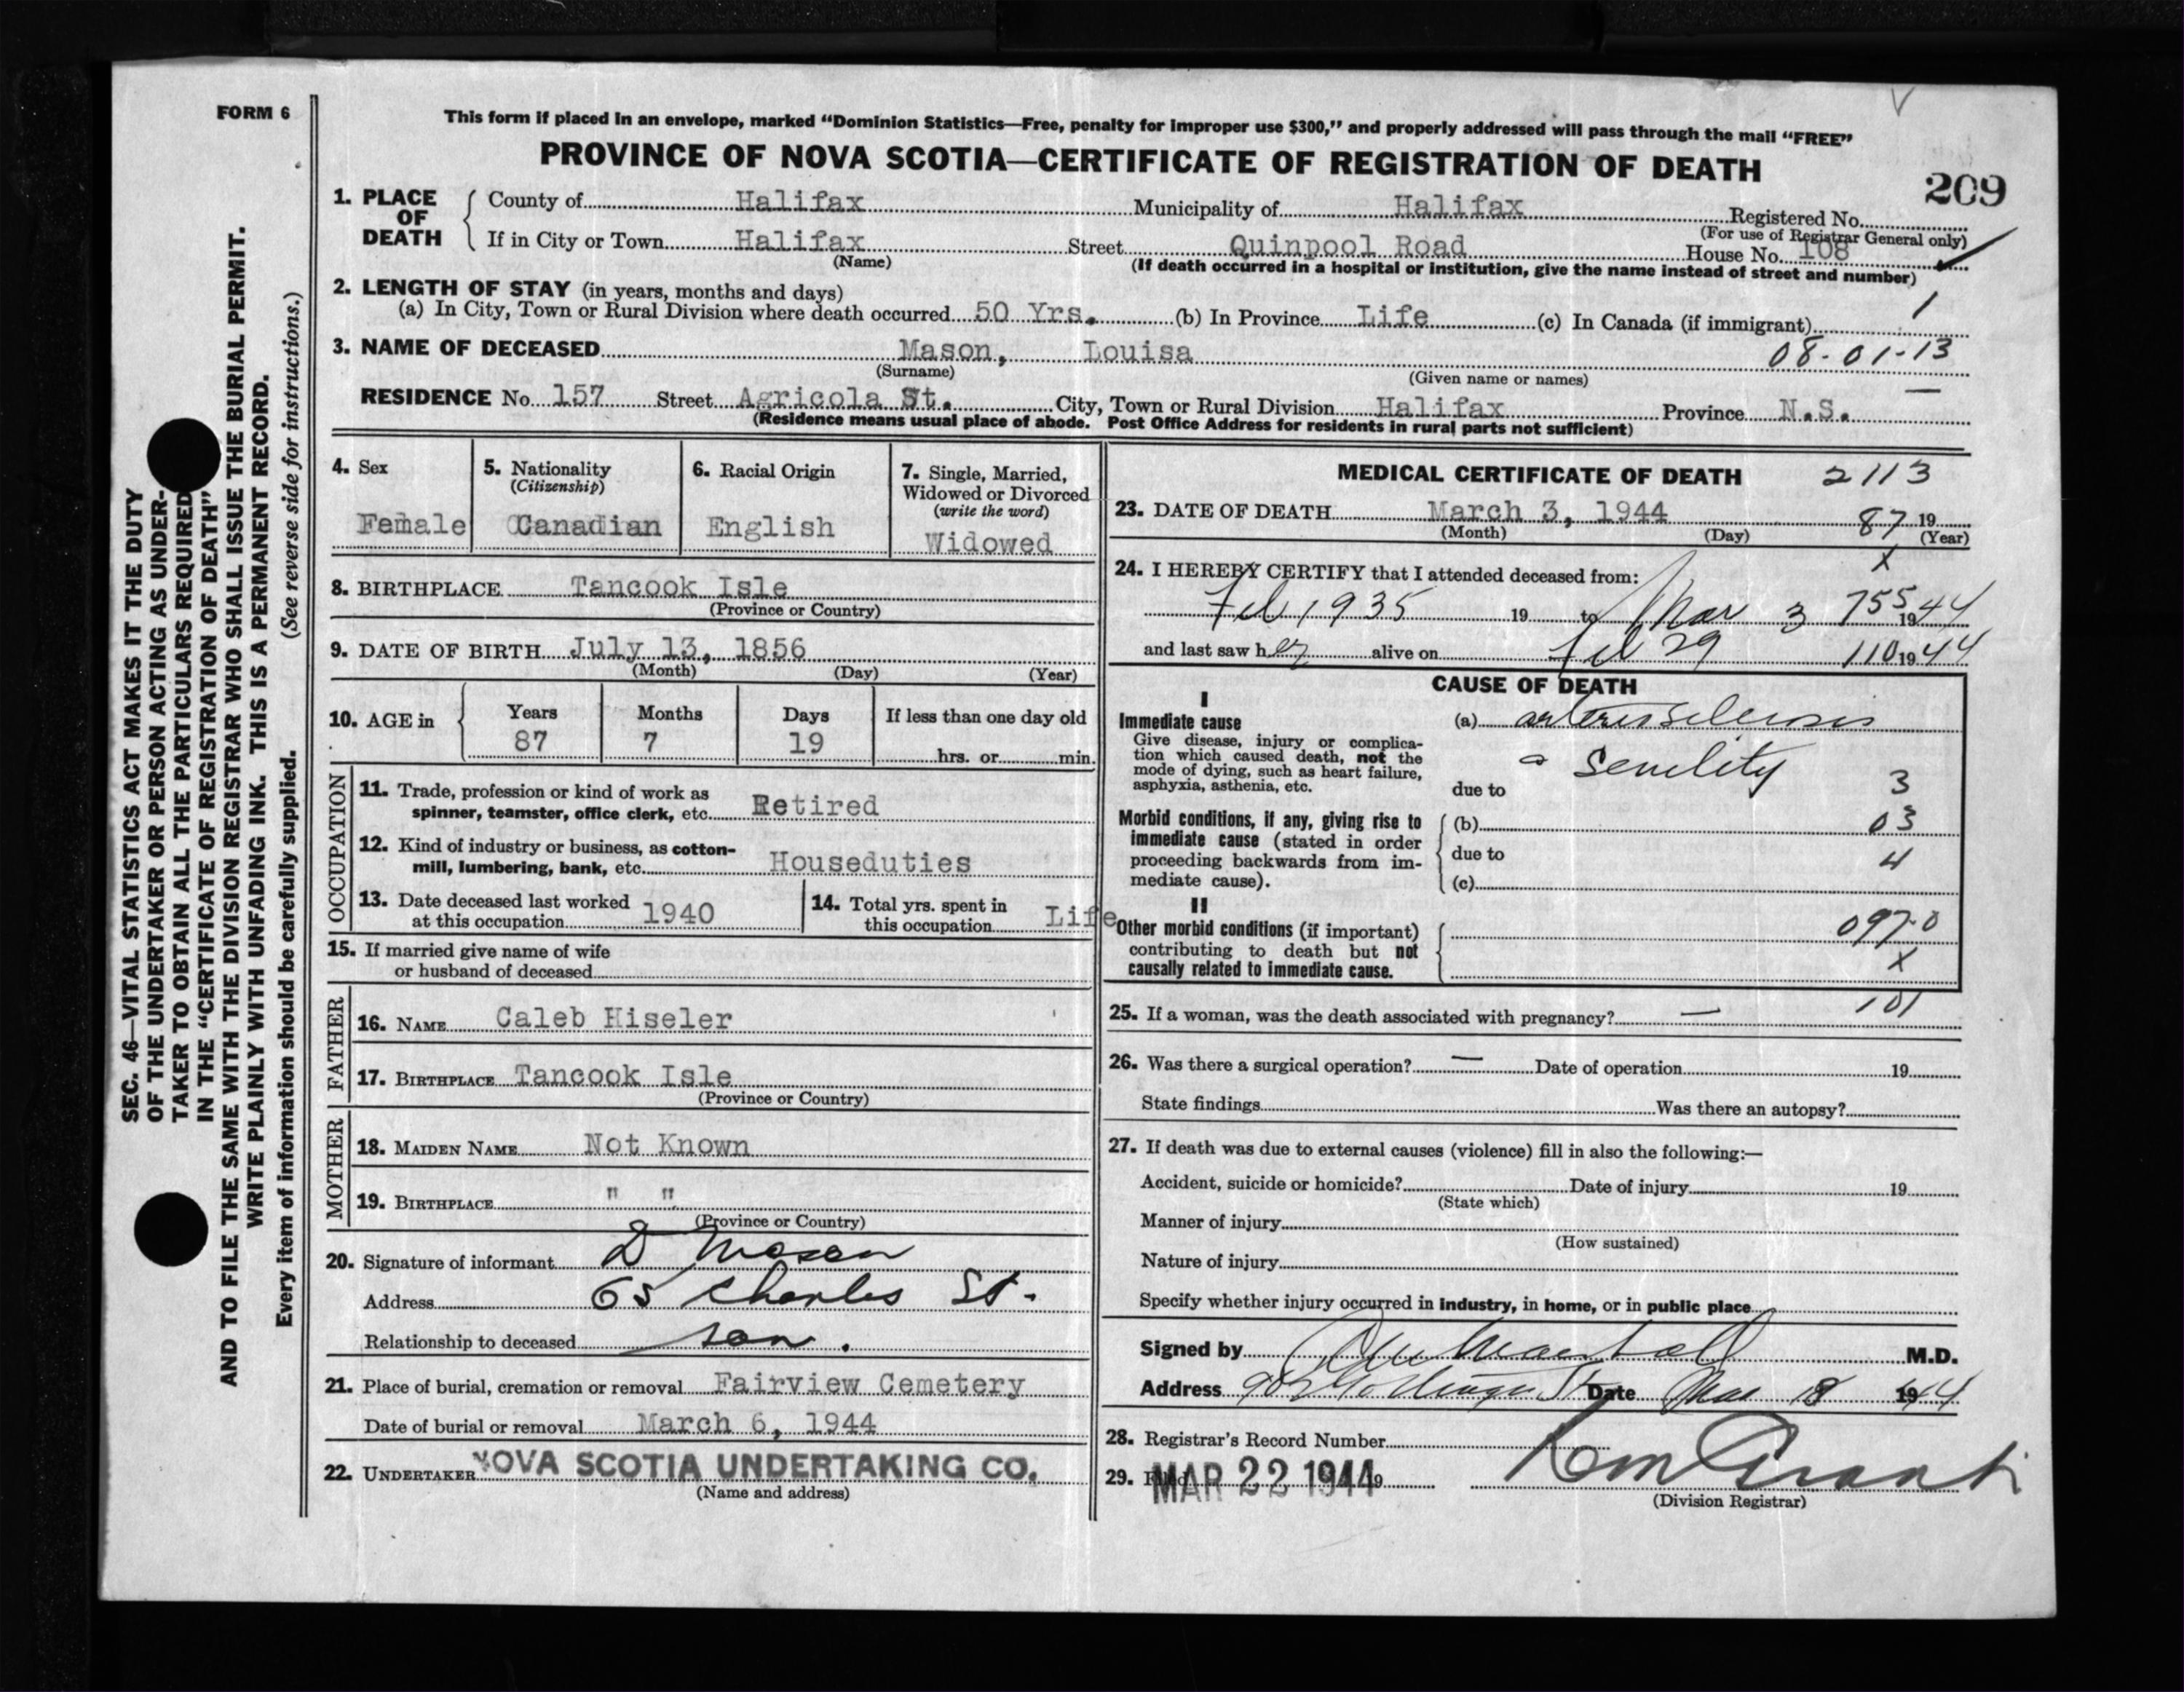 FORM 6
This form if placed in an envelope, marked “Dominion Statistics—Free, penalty for improper use $300,” and properly addressed will pass through the mail “FREE”
PROVINCE OF NOVA SCOTIA—CERTIFICATE OF REGISTRATION OF DEATH
209
1. PLACE OF DEATH
County of Halifax Municipality of Halifax Registered No.
(For use of Registrar General only)
If in City or Town Halifax Street Quinpool Road House No. 108
(Name) (If death occurred in a hospital or institution, give the name instead of street and number)
2. LENGTH OF STAY (in years, months and days)
(a) In City, Town or Rural Division where death occurred 50 Yrs. (b) In Province Life (c) In Canada (if immigrant) 1
3. NAME OF DECEASED Mason, Louisa 08-01-13
(Surname) (Given name or names)
RESIDENCE No. 157 Street Agricola St. City, Town or Rural Division Halifax Province N.S.
(Residence means usual place of abode. Post Office Address for residents in rural parts not sufficient)
4. Sex
Female
5. Nationality
(Citizenship)
Canadian
6. Racial Origin
English
7. Single, Married,
Widowed or Divorced
(write the word)
Widowed
8. BIRTHPLACE Tancook Isle
(Province or Country)
9. DATE OF BIRTH July 13, 1856
(Month) (Day) (Year)
10. AGE in Years Months Days If less than one day old
87 7 19 hrs. or min.
OCCUPATION
11. Trade, profession or kind of work as
spinner, teamster, office clerk, etc. Retired
12. Kind of industry or business, as cotton-
mill, lumbering, bank, etc. Houseduties
13. Date deceased last worked
at this occupation 1940
14. Total yrs. spent in
this occupation Life
15. If married give name of wife
or husband of deceased
FATHER
16. NAME Caleb Hiseler
17. BIRTHPLACE Tancook Isle
(Province or Country)
MOTHER
18. MAIDEN NAME Not Known
19. BIRTHPLACE " "
(Province or Country)
20. Signature of informant D Mason
Address 65 Charles St.
Relationship to deceased son.
21. Place of burial, cremation or removal Fairview Cemetery
Date of burial or removal March 6, 1944
22. UNDERTAKER NOVA SCOTIA UNDERTAKING CO.
(Name and address)
MEDICAL CERTIFICATE OF DEATH 2113
23. DATE OF DEATH March 3, 1944 87 19
(Month) (Day) (Year)
X
24. I HEREBY CERTIFY that I attended deceased from:
Feb 1935 19 to Mar 3 755 1944
and last saw her alive on Feb 29 110 1944
CAUSE OF DEATH
I
Immediate cause
Give disease, injury or complica-
tion which caused death, not the
mode of dying, such as heart failure,
asphyxia, asthenia, etc.
(a) arteriosclerosis
Senility
due to 3
Morbid conditions, if any, giving rise to
immediate cause (stated in order
proceeding backwards from im-
mediate cause).
(b) 03
due to 4
(c)
II
Other morbid conditions (if important)
contributing to death but not
causally related to immediate cause.
097-0
X
25. If a woman, was the death associated with pregnancy? — 101
26. Was there a surgical operation? — Date of operation 19
State findings Was there an autopsy?
27. If death was due to external causes (violence) fill in also the following:—
Accident, suicide or homicide? Date of injury 19
(State which)
Manner of injury
(How sustained)
Nature of injury
Specify whether injury occurred in industry, in home, or in public place
Signed by M.D.
Address St Date Mar 18 1944
28. Registrar's Record Number
29. Filed MAR 22 1944 19
(Division Registrar)
SEC. 46—VITAL STATISTICS ACT MAKES IT THE DUTY
OF THE UNDERTAKER OR PERSON ACTING AS UNDER-
TAKER TO OBTAIN ALL THE PARTICULARS REQUIRED
IN THE “CERTIFICATE OF REGISTRATION OF DEATH”
AND TO FILE THE SAME WITH THE DIVISION REGISTRAR WHO SHALL ISSUE THE BURIAL PERMIT.
WRITE PLAINLY WITH UNFADING INK. THIS IS A PERMANENT RECORD.
Every item of information should be carefully supplied. (See reverse side for instructions.)